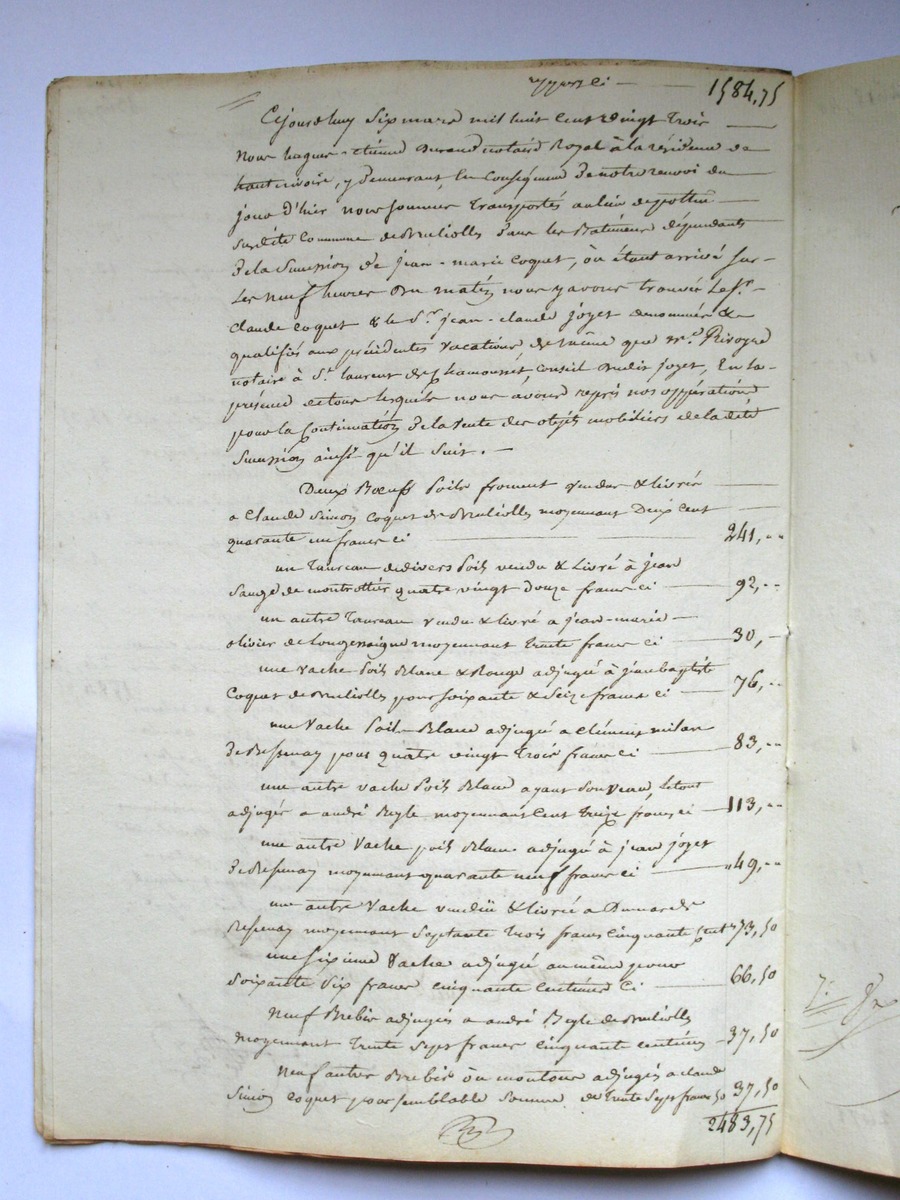 report ci — 1584,75
Cejourdhuy Six mars mil huit cent vingt trois
Nous hugues-étienne Durand notaire Royal à la résidence de
hauterivoire, y demeurant, En Conséquence de notre renvoi du
jour d'hier nous sommes transportés au lieu de
Susdite Commune de Brullioles dans les Batimens dépendants
De la Succession de jean-marie Coquet, ou étant arrivé Sur
Les neuf heures du matin nous y avons trouvés Le Sr
Claude Coquet & le Sr jean-claude joyet denommés &
qualifiés aux précédentes vacations de même que me Rivoyre
notaire à St laurent de Chamousset, Conseil dudit joyet, En la
présence de tous lesquels nous avons repris nos oppérations,
pour la Continuation de la Vente des objets mobiliers de la dite
Succession ainsi qu'il Suit. —
Deux Bœufs Poils froment vendus & livrés
a Claude Simon Coquet de Brullioles moyennant Deux Cent
quarante un francs ci — 241, ..
un Taureau de divers Poils vendu & Livré à jean
Sauge de montrottier quatre vingt Douze francs ci — 92, ..
un autre Taureau vendu & livré a jean-marie
olivier de Longessaigne moyennant trente francs ci — 30, —
une vache Poil Blanc & Rouge adjugé à jean baptiste
Coquet de Brullioles pour Soixante & Seize francs ci — 76, ..
une Vache Poil Blanc adjugé a Clément milan
De Bessenay pour quatre vingt Trois francs ci — 83, ..
une autre vache Poil Blanc ayant Son Veau, Le tout
adjugés a andré Beyle moyennant Cent treize francs ci — 113, ..
une autre Vache poil Blanc adjugé à jean joyet
De Bessenay moyennant quarante neuf francs ci — 49, ..
une autre Vache vendüe & livrée a de
Bessenay moyennant Septante Trois francs Cinquante Cent 73,50
une Sixieme Vache adjugé au même pour
Soixante Six francs cinquante Centimes Ci — 66,50
Neuf Brebis adjugés a andré Beyle de Brullioles
moyennant trente Sept francs Cinquante Centimes — 37,50
Neuf autres Brebis ou moutons adjugés a claude
Simon Coquet pour Semblable Somme de trente Sept francs 50 37,50
2483,75